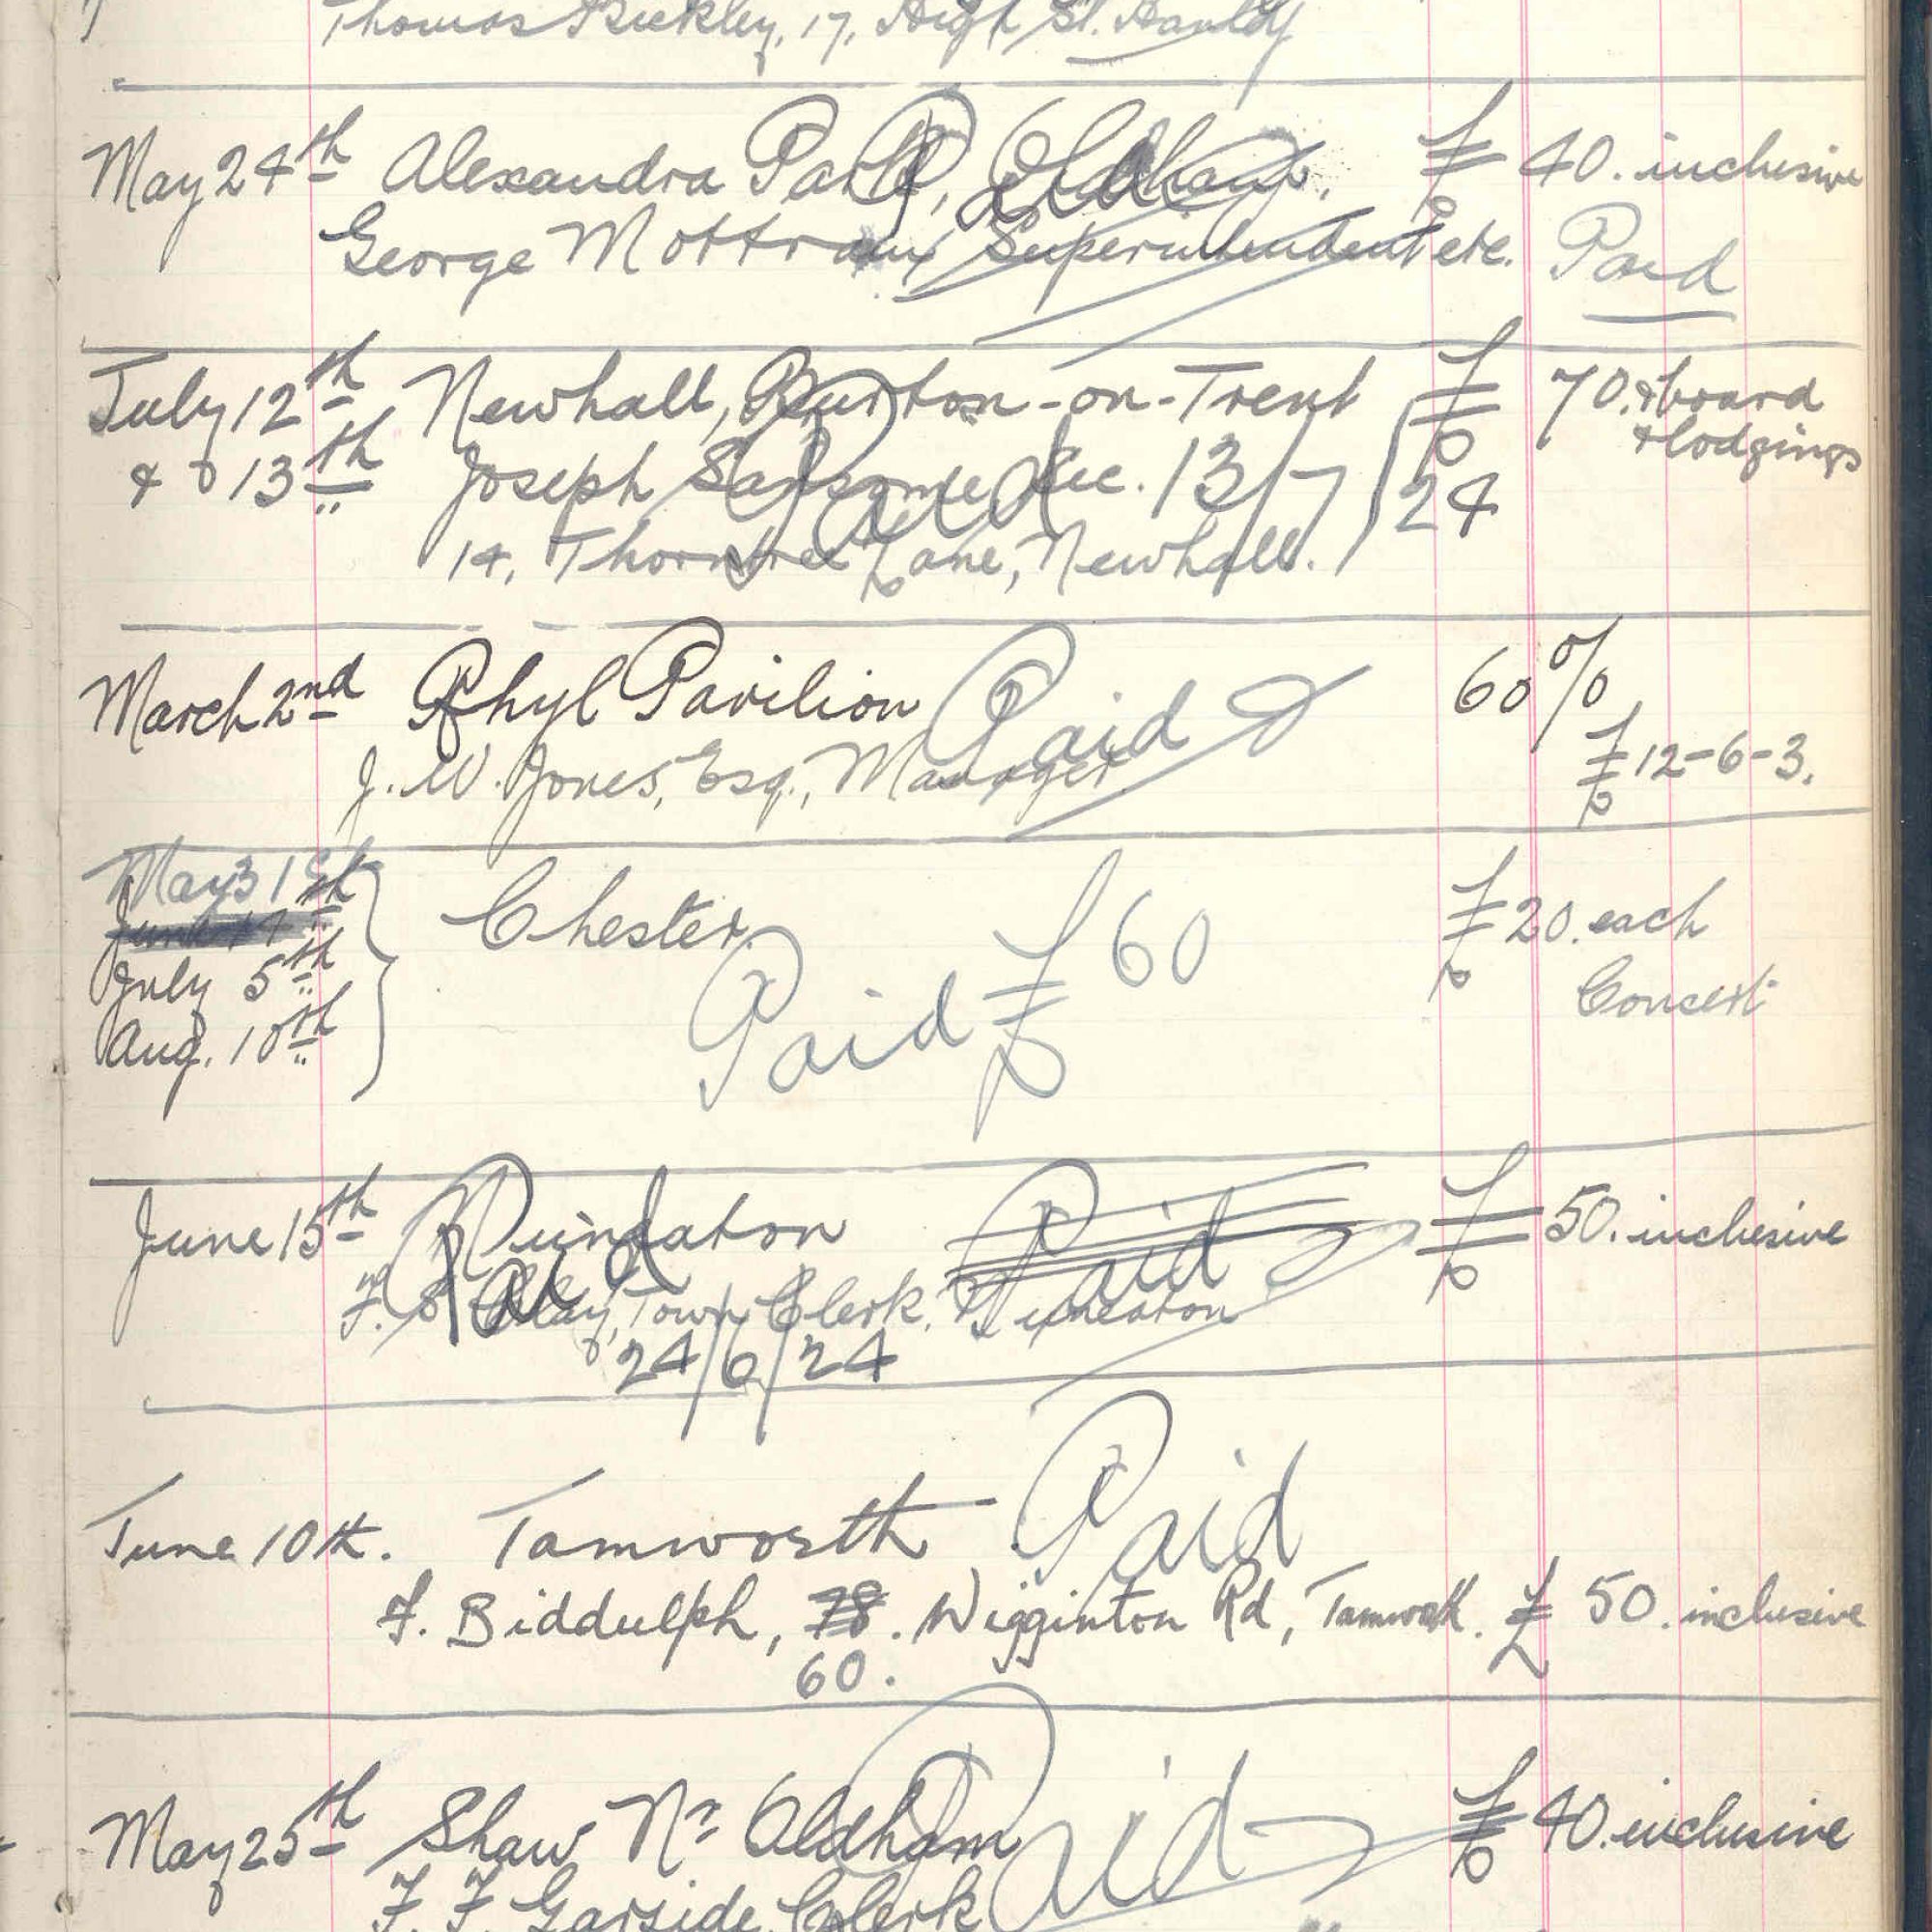 Thomas Buckley, 17, High St. Hanley
May 24th Alexandra Park, Oldham. £40. inclusive
George Mottram, Superintendent etc. Paid
July 12th Newhall, Burton-on-Trent £70. & board
& 13th Joseph Sansome Sec. 13/7/24 & lodgings
14, Thorntree Lane, Newhall.
Paid
March 2nd Rhyl Pavilion Paid 60%
J. W. Jones, Esq., Manager £12-6-3.
May 31st Chester. £20. each
June
July 5th Paid £60 Concert
Aug. 10th
June 15th Nuneaton Paid £50. inclusive
Paid
F. S. Clay, Town Clerk, Nuneaton
24/6/24
June 10th. Tamworth Paid
F. Biddulph, 78. Wigginton Rd, Tamworth. £50. inclusive
60.
May 25th Shaw Nr Oldham Paid £40. inclusive
F. F. Garside, Clerk